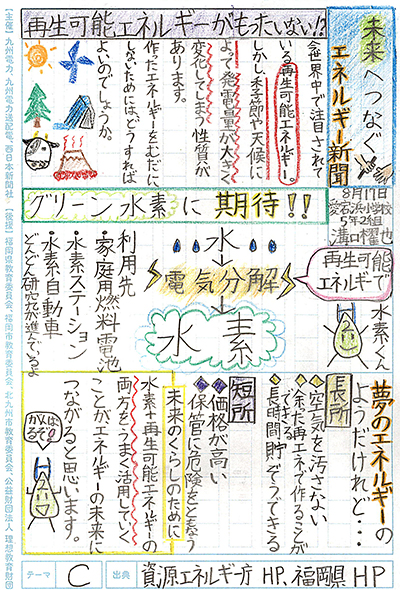 未来へつなぐ
エネルギー新聞
8月17日
愛宕浜小学校
5年2組
溝口 耀也
再生可能エネルギーがもったいない!?
今世界中で注目されて
いる再生可能エネルギー。
しかし、季節や天候に
よって発電量が大きく
変化してしまう性質が
あります。
作ったエネルギーをむだに
しないためには、どうすれば
よいのでしょうか。
グリーン水素に期待!!
水
電気分解
水素
再生可能
エネルギーで
水素くん
利用先
・家庭用燃料電池
・水素ステーション
・水素自動車
どんどん研究が進んでいるよ
夢のエネルギーの
ようだけれど・・・
長所
空気を汚さない
余った再エネで作ることが
できる
長時間貯ぞうできる
短所
価格が高い
保管に危険をともなう
未来のくらしのために
水素+再生可能エネルギーの
両方をうまく活用していく
ことがエネルギーの未来に
つながると思います。
がんば
るぞ!
テーマ C 出典 資源エネルギー庁HP、福岡県HP
【主催】九州電力、九州電力送配電、西日本新聞社 【後援】福岡県教育委員会、福岡市教育委員会、北九州市教育委員会、公益財団法人 理想教育財団